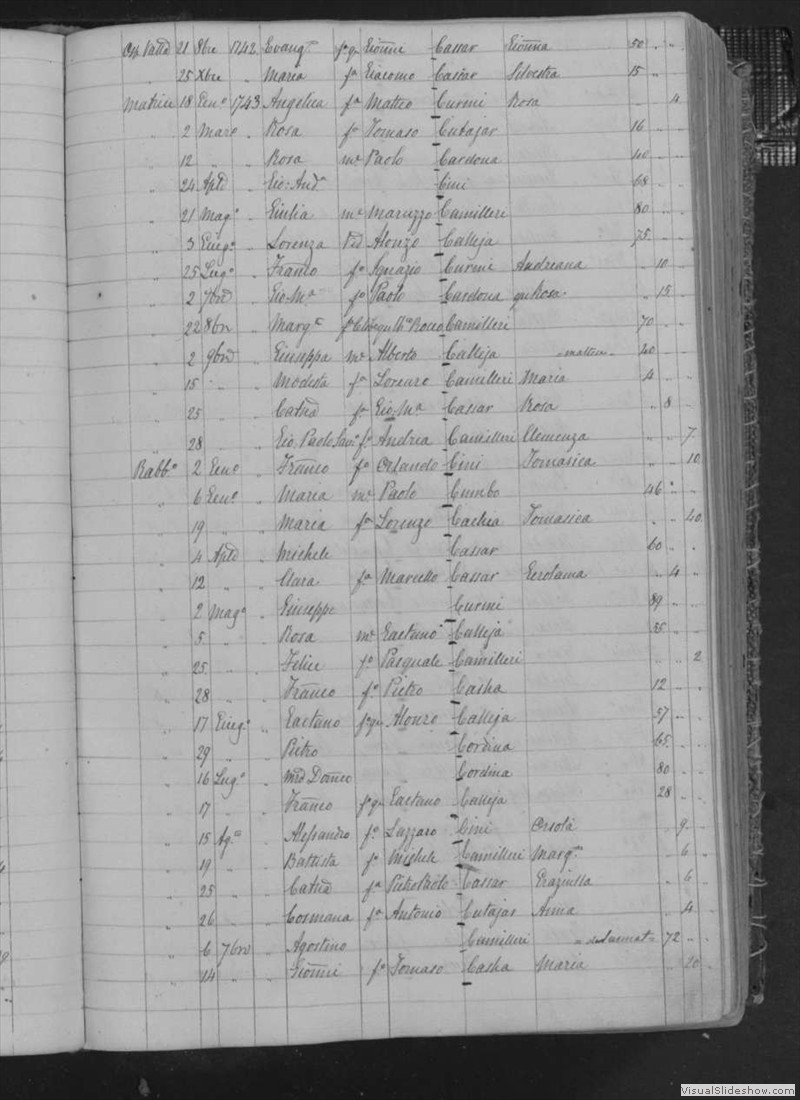 21 8bre 1742 Evang.a fa qu Gionni Cassar Gionna 50 " "
" 25 Xbre " Maria fa Giacomo Cassar Silvestra 15 "
Matrice 18 Gen.o 1743 Angelica fa Matteo Curmi Rosa " 4
" 2 Maro " Rosa fa Tomaso Cutajar 16 "
" 12 " " Rosa me Paolo Cardona 40 "
" 24 Aple " Gio: And.a Cini 68 "
" 21 Mag.o " Giulia me Maruzzo Camilleri 80 "
" 3 Giug.o " Lorenza Ved Alonzo Calleja 75 "
" 25 Lug.o " Franco fo Ignazio Curmi Andreana " 10 "
" 2 7bre " Gio Ma fo Paolo Cardona qu Rosa " 15 "
" 22 8bre " Marg.a Rocco Camilleri 70 "
" 2 9bre " Giuseppa me Alberto Calleja 40 "
" 15 " " Modesta fa Lorenzo Camilleri Maria 4 "
" 25 " Catna fa Gio Ma Cassar Rosa " 8 "
" 28 " Gio Paolo Sav.o fo Andrea Camilleri Clemenza " " 7
Rabb.o 2 Gen.o " Franco fo Orlando Cini Tomasica " " 10
" 6 Gen.o " Maria me Paolo Cumbo 46 " "
" 19 " " Maria fa Lorenzo Cachia Tomasica " " 40
" 4 Aple " Michele Cassar 60 " "
" 12 " " Clara fa Marcello Cassar Gerolama " 4 "
" 2 Mag.o " Giuseppe Curmi 89 " "
" 5 " " Rosa me Gaetano Calleja 35 " "
" 25 " " Felice fo Pasquale Camilleri " " 2
" 28 " " Franco fo Pietro Casha 12 " "
" 17 Giug.o " Gaetano fo qu Alonzo Calleja 57 " "
" 29 " " Pietro Cordina 65 " "
" 16 Lug.o " Mro Domco Cordina 80 " "
" 17 " " Franco fo qu Gaetano Calleja 28 " "
" 15 Ag.o " Alessandro fo Lazzaro Cini Orsola " 9 "
" 19 " " Battista fo Michele Camilleri Marg.a " 6 "
" 25 " " Catna fa Pietro Paolo Cassar Graziulla " 6 "
" 26 " " Cosmana fa Antonio Cutajar Anna " 4 "
" 6 7bre " Agostino Camilleri 72 " "
" 14 " " Gionni fo Tomaso Casha Maria " 20 "
VisualSlideshow.com